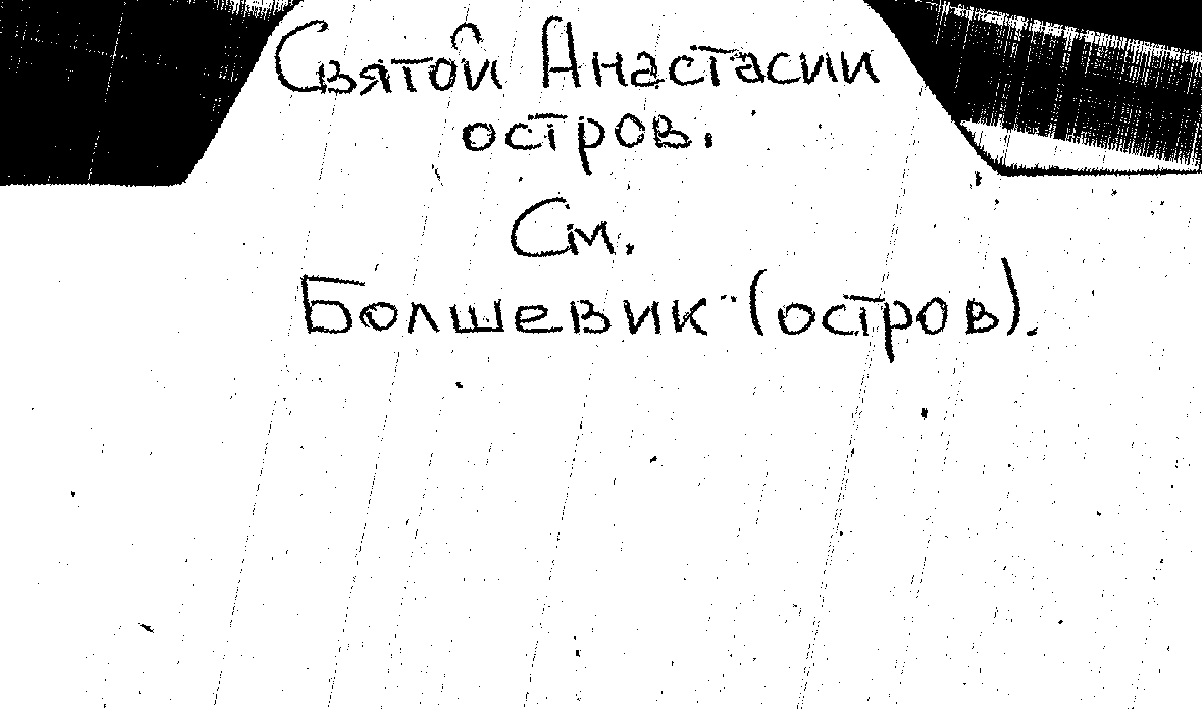 Святой Анастасии
остров.
См.
Болшевик (остров).